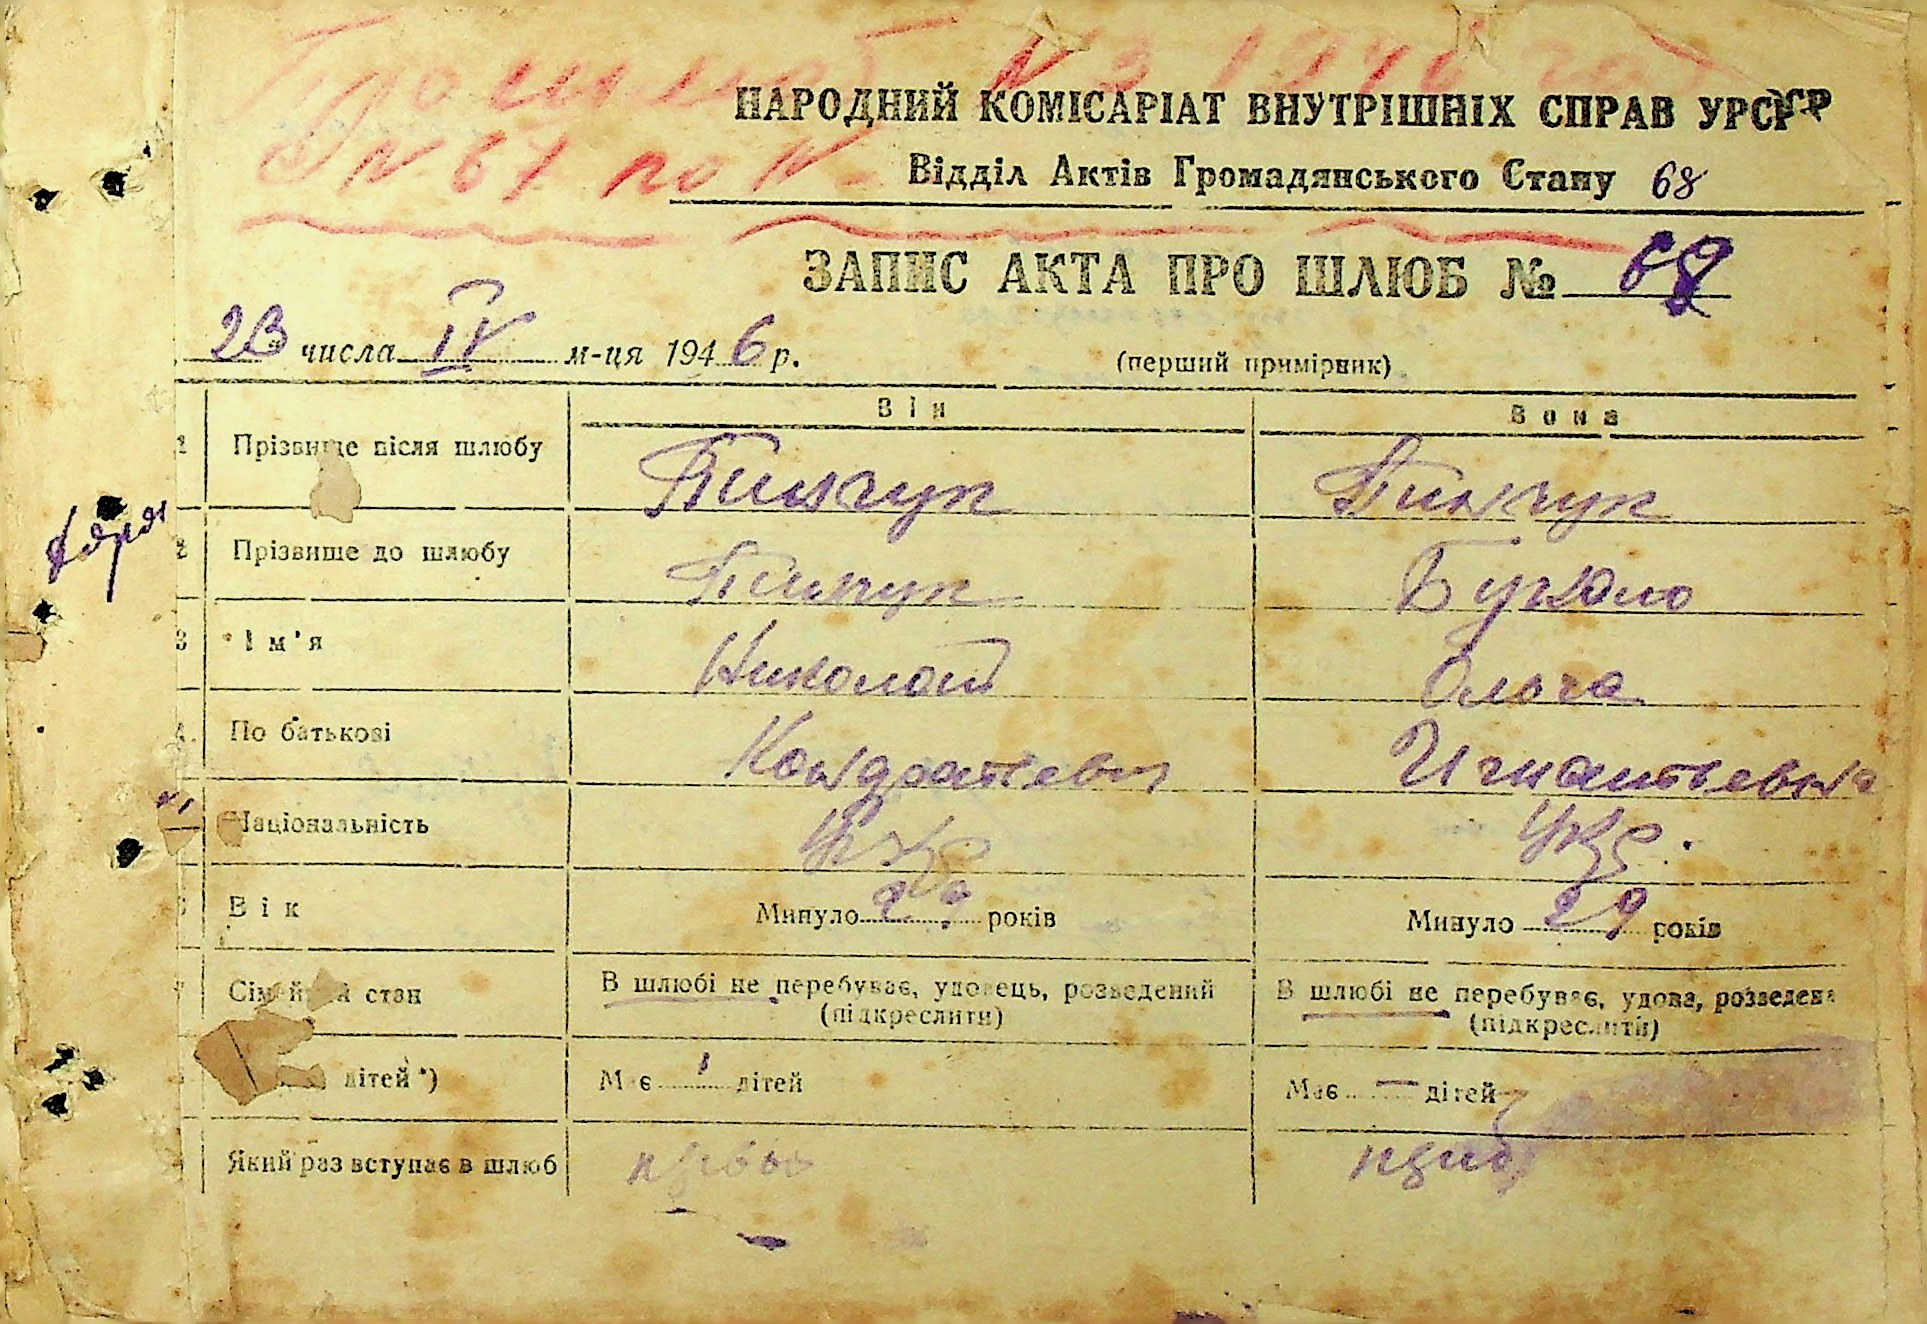 Про шлюб N 3 1946 год
N 67 по N
НАРОДНИЙ КОМІСАРІАТ ВНУТРІШНІХ СПРАВ УРСР
Відділ Актів Громадянського Стану 68
ЗАПИС АКТА ПРО ШЛЮБ №
23 числа IV м-ця 1946 р. (перший примірник)
Він Вона
1 Прізвище після шлюбу Пинчук Пинчук
2 Прізвише до шлюбу Пинчук
3 Ім'я Николай Ольга
4. По батькові Кондратьевич Игнатьевна
Національність Укр Укр.
Вік Минуло років Минуло 29 років
Сімейний стан В шлюбі не перебуває, удовець, розведений В шлюбі не перебуває, удова, розведена
(підкреслити) (підкреслити)
дітей *) Має дітей Має — дітей
Який раз вступає в шлюб